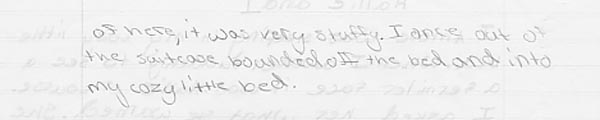 of here, it was very stuffy. I once out of
the suitcase bounded off the bed and into
my cozy little bed.